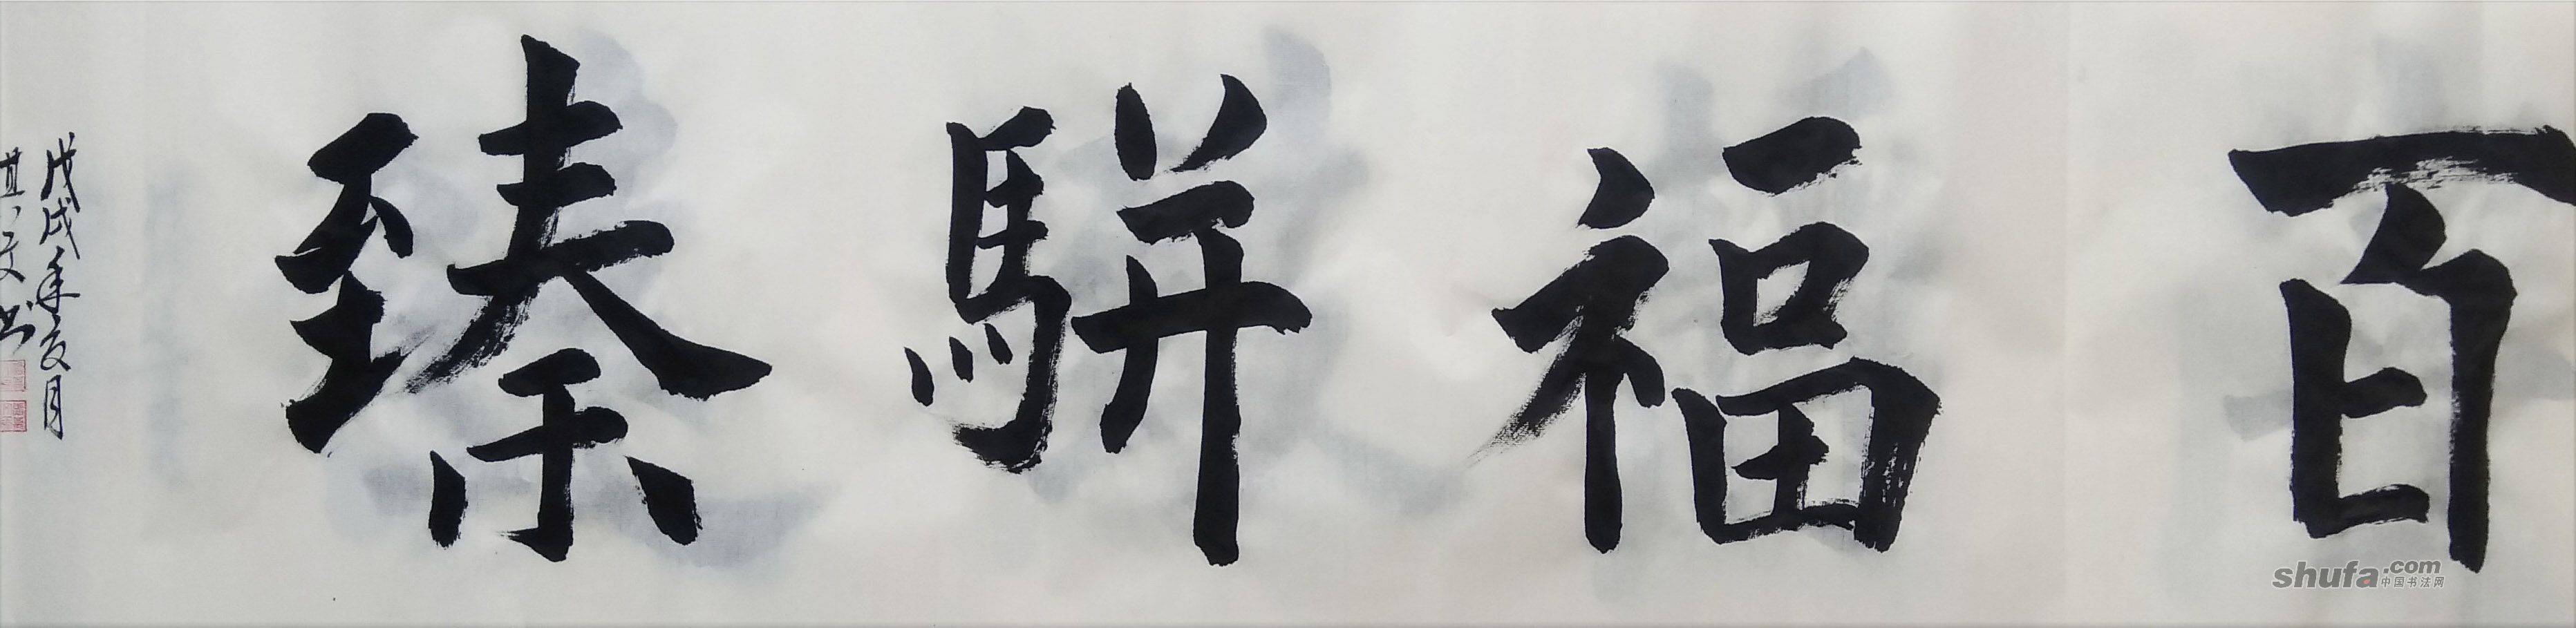 百福駢臻
戊戌年夏月
文书
shufa.com
中国书法网